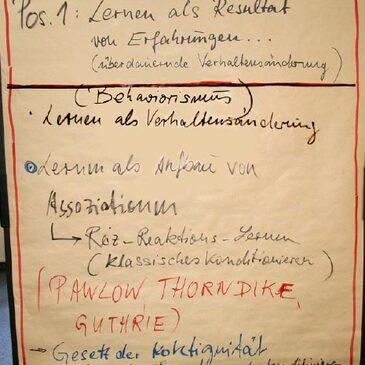 Pos. 1: Lernen als Resultat
von Erfahrungen...
(überdauernde Verhaltensänderung)
(Behaviorismus)
• Lernen als Verhaltensänderung
Lernen als Aufbau von
Assoziationen
↳ Reiz-Reaktions-Lernen
(klassisches Konditionieren)
(PAWLOW, THORNDIKE,
GUTHRIE)
→ Gesetz der Kontiguität